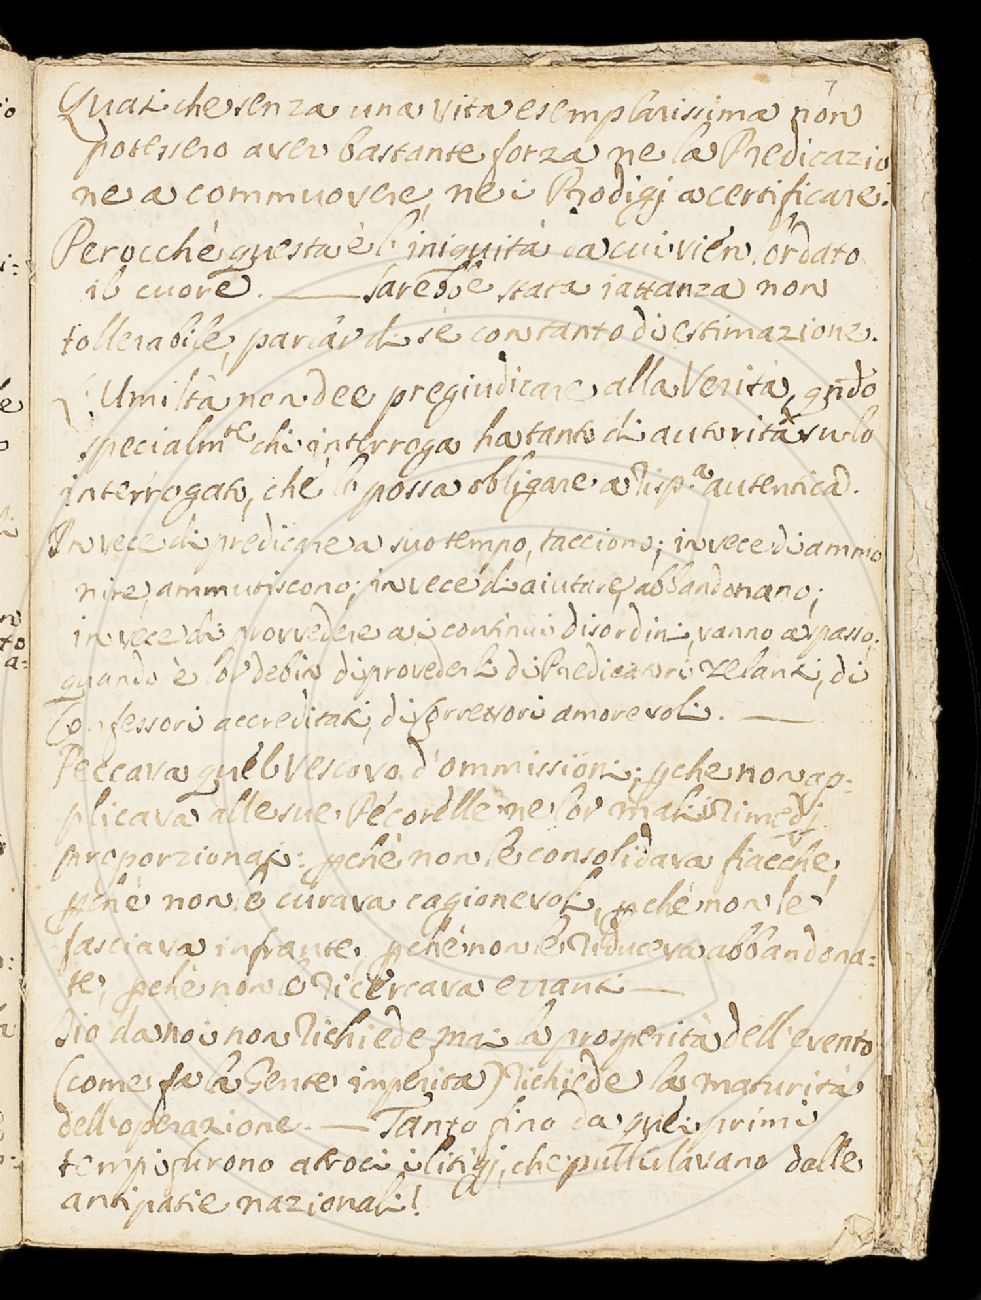 7
Quasi che senza una vita esemplarissima non
potessero aver bastante forza ne la Predicazio
ne a commuovere, ne i Prodigj a certificare.
Perocchè questa è l'iniquità da cui vien lordato
il cuore. — Sarebbe stata iattanza non
tollerabile, parlar di sè con tanto di estimazione.
L'Umiltà non dee pregiudicare alla Verità, qndo
specialmte chi interroga ha tanto di autorità su lo
interrogato, che lo possa obligare a rispa autentica.
In vece di predicare a suo tempo, tacciono; in vece di ammo
nire, ammutiscono; in vece di aiutare, abbandonano;
in vece di provvedere a i continui disordini, vanno a spasso;
quando è lor debito di provederli di Predicatori zelanti, di
Confessori accreditati, di Correttori amorevoli. —
Peccava quel Vescovo d'ommissioni; pche non ap-
plicava alle sue Pecorelle ne lor mali rimedj
proporzionati: pchè non le consolidava fiacche,
pchè non le curava cagionevoli, pchè non le
fasciava infrante, pchè non le riduceva abbandona=
te, pchè non le ricercava erranti —
Dio da noi non richiede mai la prosperità dell'evento
(come fa la Gente imperita) richiede la maturità
dell'operazione. — Tanto fino da quei primi
tempi furono atroci i litigj, che pullulavano dalle
antipatie nazionali!